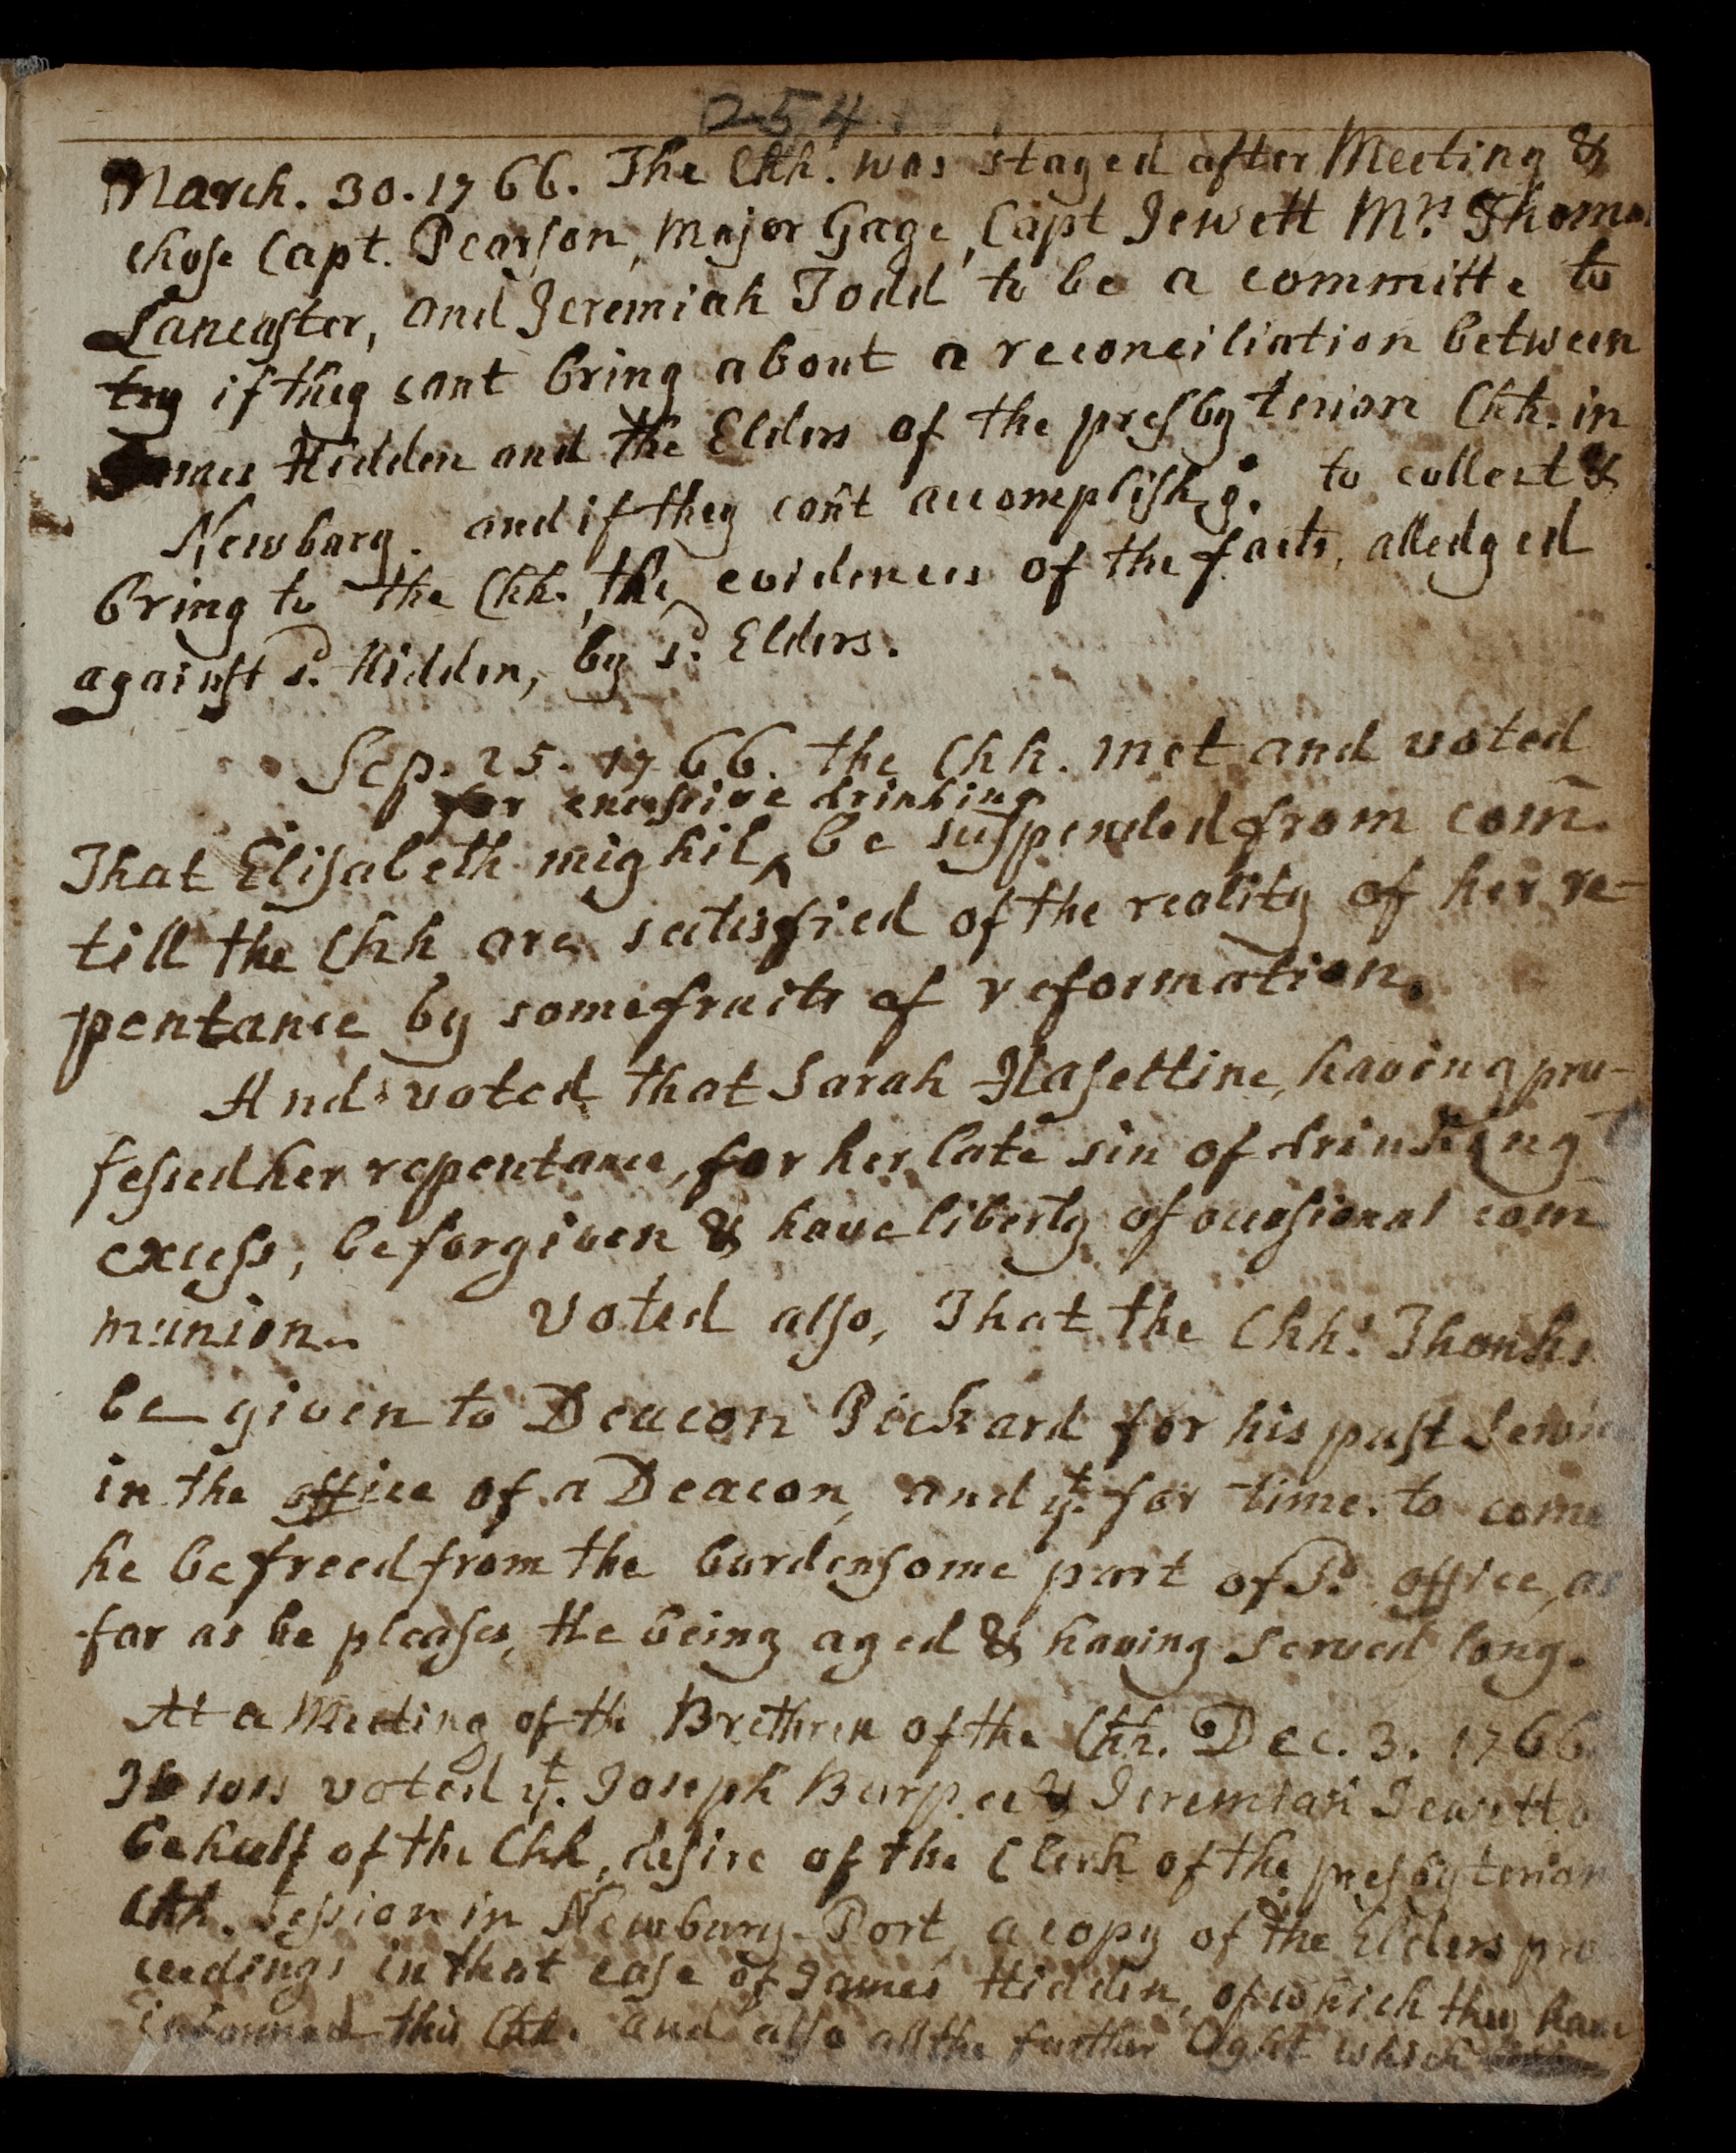 254
March. 30. 1766. The Chh. was stayed after Meeting &
chose Capt. Pearson, Major Gage, Capt Jewett Mr. Thomas
Lancaster, and Jeremiah Todd to be a committe to
try if they cant bring about a reconciliation between
James Hidden and the Elders of the presbyterian Chh. in
Newbury. and if they can't accomplish y. to collect &
bring to the Chh. the evidences of the facts, alledged
against sd. Hidden, by sd. Elders.
Sep. 25. 1766. the Chh. met and voted
for excessive drinking
That Elisabeth mighil ‸ be suspended from com̄.
till the Chh are satisfied of the reality of her re-
pentance by some fruits of reformation.
And voted that Sarah Hasettine, having pro-
fessed her repentance, for her late sin of drinking
excess, be forgiven & have liberty of occasional com̄
munion. Voted also, That the Chhs. Thanks
be given to Deacon Pickard for his past Service
in the office of a Deacon, and yt. for time to come
he be freed from the burdensome part of sd. office, as
far as he pleases, He being aged & having served long.
At a Meeting of the Brethren of the Chh. Dec. 3. 1766
It was voted yt. Joseph Burpee & Jeremiah Jewett o
behalf of the Chh, desire of the Clerk of the presbyterian
Chh. session in Newbury-Port, a copy of the Elders pro
ceedings in that case of James Hidden, of which they have
informed this Chh. and also all the further light which